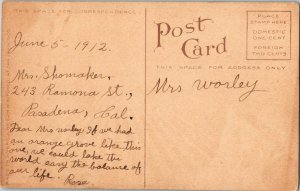 THIS SPACE FOR CORRESPONDENCE
Post
Card
PLACE
STAMP HERE
DOMESTIC
ONE CENT
FOREIGN
TWO CENTS
THIS SPACE FOR ADDRESS ONLY
June 5 - 1912.
Mrs. Shomaker,
243 Ramona St.,
Pasadena, Cal.
Dear Mrs worley: If we had
an orange grove like this
one, we could take the
world easy the balance of
our life. Rose
Mrs Worley